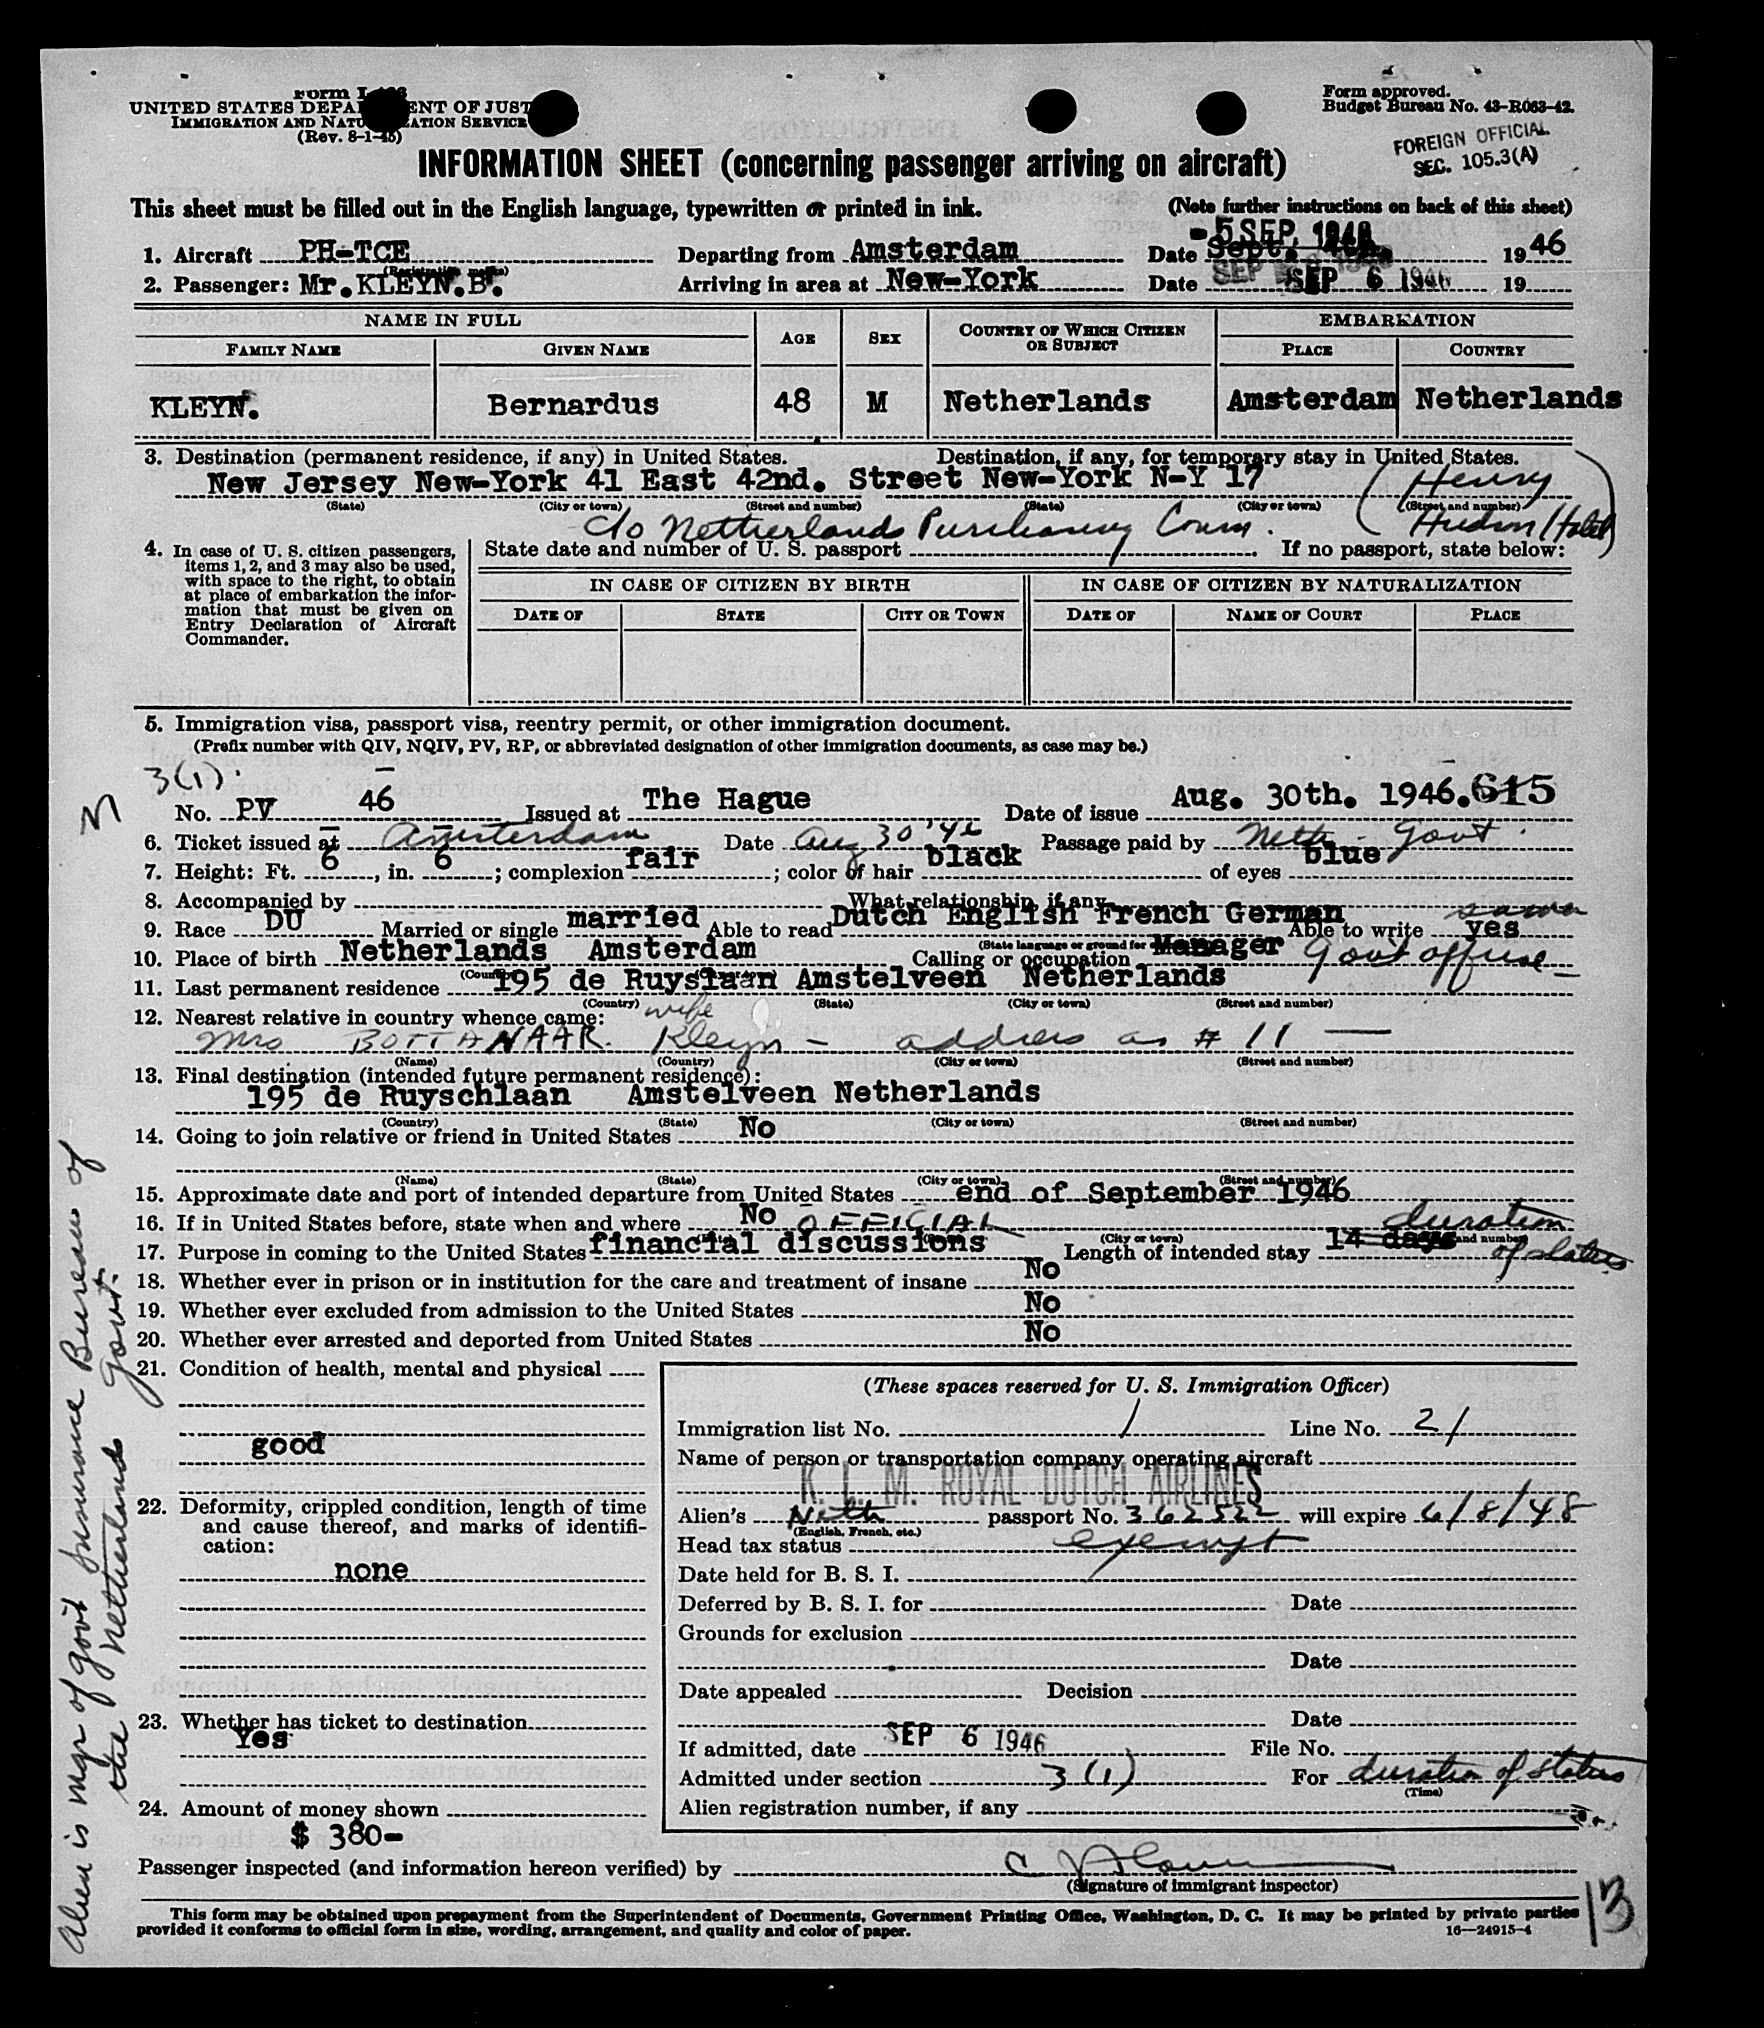 Form I-
UNITED STATES DEPA ENT OF JUST
IMMIGRATION AND NATU ATION SERVICE
(Rev. 8-1-45)
Form approved.
Budget Bureau No. 43-R063-42.
FOREIGN OFFICIAL
SEC. 105.3(A)
INFORMATION SHEET (concerning passenger arriving on aircraft)
This sheet must be filled out in the English language, typewritten or printed in ink. (Note further instructions on back of this sheet)
- 5 SEP. 1946
1. Aircraft PH-TCE Departing from Amsterdam Date Sept. 1946
(Registration marks)
2. Passenger: Mr. KLEYN. B. Arriving in area at New-York Date SEP 6 1946 19
NAME IN FULL AGE SEX COUNTRY OF WHICH CITIZEN OR SUBJECT EMBARKATION
FAMILY NAME GIVEN NAME PLACE COUNTRY
KLEYN. Bernardus 48 M Netherlands Amsterdam Netherlands
3. Destination (permanent residence, if any) in United States. Destination, if any, for temporary stay in United States.
New Jersey New-York 41 East 42nd. Street New-York N-Y 17 (Henry
(State) (City or town) (Street and number) (State) (City or town) (Street and number)
c/o Netherlands Purchasing Comm. Hudson Hotel)
4. In case of U. S. citizen passengers, items 1, 2, and 3 may also be used, with space to the right, to obtain at place of embarkation the information that must be given on Entry Declaration of Aircraft Commander.
State date and number of U. S. passport If no passport, state below:
IN CASE OF CITIZEN BY BIRTH IN CASE OF CITIZEN BY NATURALIZATION
DATE OF STATE CITY OR TOWN DATE OF NAME OF COURT PLACE
5. Immigration visa, passport visa, reentry permit, or other immigration document.
(Prefix number with QIV, NQIV, PV, RP, or abbreviated designation of other immigration documents, as case may be.)
3(1).
No. PV 46 Issued at The Hague Date of issue Aug. 30th. 1946. 615
6. Ticket issued at Amsterdam Date Aug 30 '46 Passage paid by Neth. Govt.
7. Height: Ft. 6, in. 6; complexion fair; color of hair black of eyes blue
8. Accompanied by What relationship, if any
9. Race DU Married or single married Able to read Dutch English French German Able to write yes same
(State language or ground for
10. Place of birth Netherlands Amsterdam Calling or occupation Manager Gov't official
(Country) (City or town)
11. Last permanent residence 195 de Ruyslaan Amstelveen Netherlands
(Country) (State) (City or town) (Street and number)
12. Nearest relative in country whence came: wife
Mrs BOTTANAAR. Kleyn - address as # 11
(Name) (Country) (City or town) (Street and number)
13. Final destination (intended future permanent residence):
195 de Ruyschlaan Amstelveen Netherlands
(Country) (State) (City or town) (Street and number)
14. Going to join relative or friend in United States No
(Name) (State) (City or town) (Street and number)
15. Approximate date and port of intended departure from United States end of September 1946
16. If in United States before, state when and where No OFFICIAL duration
(City or town) and number)
17. Purpose in coming to the United States financial discussions Length of intended stay 14 days of status
18. Whether ever in prison or in institution for the care and treatment of insane No
19. Whether ever excluded from admission to the United States No
20. Whether ever arrested and deported from United States No
21. Condition of health, mental and physical
good
22. Deformity, crippled condition, length of time and cause thereof, and marks of identification:
none
23. Whether has ticket to destination
Yes
24. Amount of money shown
$ 380-
(These spaces reserved for U. S. Immigration Officer)
Immigration list No. 1 Line No. 21
Name of person or transportation company operating aircraft
K. L. M. ROYAL DUTCH AIRLINES
Alien's Neth passport No. 362522 will expire 6/8/48
(English, French, etc.)
Head tax status exempt
Date held for B. S. I.
Deferred by B. S. I. for Date
Grounds for exclusion
Date
Date appealed Decision
Date
If admitted, date SEP 6 1946 File No.
Admitted under section 3(1) For duration of status
(Time)
Alien registration number, if any
Passenger inspected (and information hereon verified) by
(Signature of immigrant inspector)
This form may be obtained upon prepayment from the Superintendent of Documents, Government Printing Office, Washington, D. C. It may be printed by private parties
provided it conforms to official form in size, wording, arrangement, and quality and color of paper. 16—24915-4
13
Alien is mgr of gov't Insurance Bureau of
the Netherlands Govt.